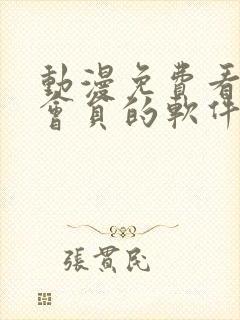 動漫免費看
會員的軟件
張貫民